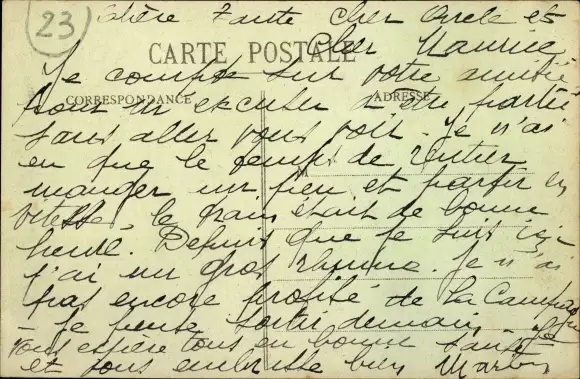 23
Chère Tante Cher Oncle et
Cher Maurice
CARTE POSTALE
Je compte sur votre amitié
CORRESPONDANCE
ADRESSE
pour m'excuser d'être partie
sans aller vous voir. Je n'ai
eu que le temps de rentrer
manger un peu et partir en
vitesse, le train était de bonne
heure. Depuis que je suis ici
j'ai un gros rhume. Je n'ai
pas encore profité de la Campagne
- Je pense sortir demain. - Je
vous espère tous en bonne santé
et vous embrasse bien